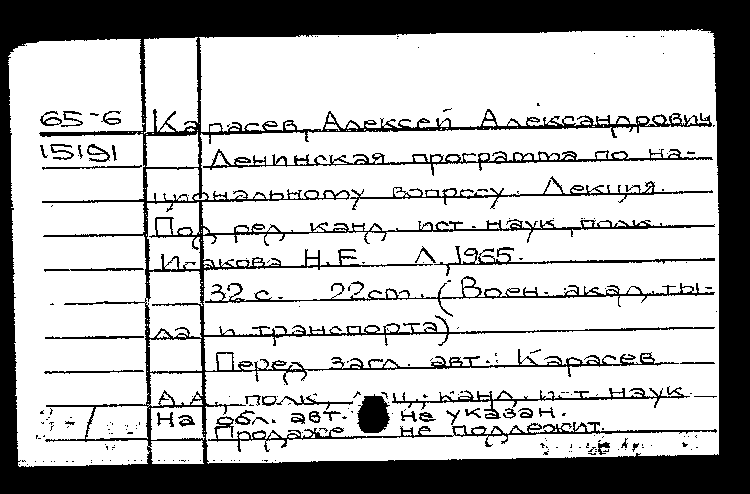 65-6 Карасев, Алексей Александрович
15191 Ленинская программа по на-
циональному вопросу. Лекция.
Под ред. канд. ист. наук, полк.
Исакова Н.Е. Л., 1965.
32 с. 22 см. (Воен. акад. ты-
ла и транспорта)
Перед загл. авт.: Карасев
А.А., полк., канд. ист. наук
На обл. авт. не указан.
Продаже не подлежит.